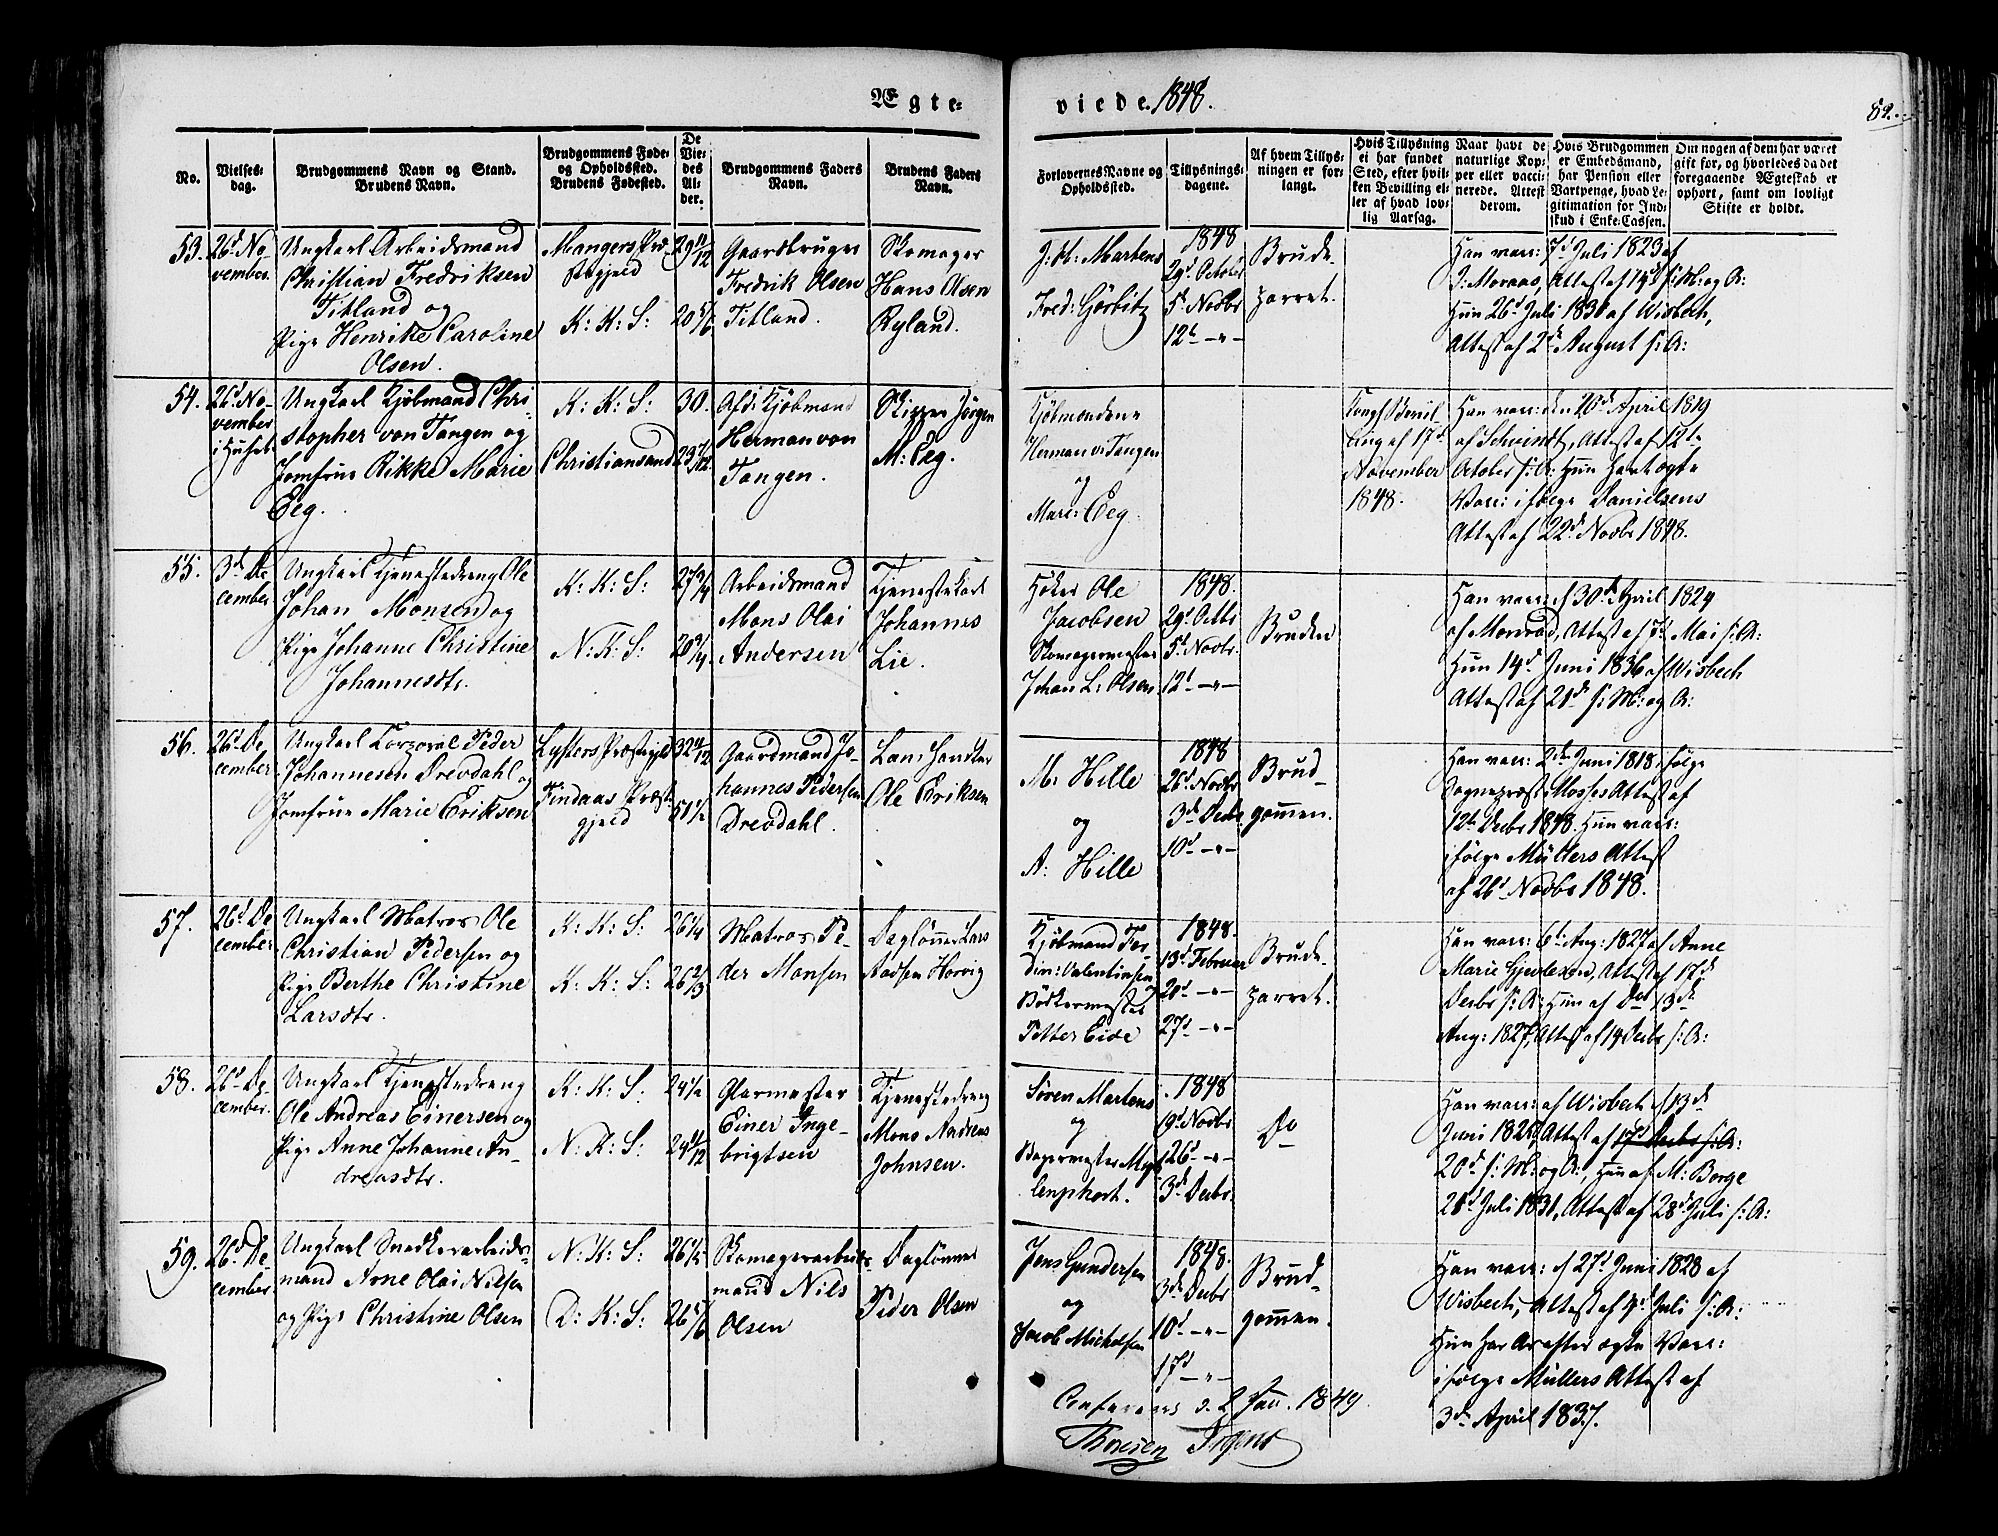 Ægte-
viede. 1848.
82.
No.
Vielses-
dag.
Brudgommens Navn og Stand.
Brudens Navn.
Brudgommens Føde-
og Opholdssted.
Brudens Fødested.
De
Vie-
des
Al-
der.
Brudgommens Faders
Navn.
Brudens Faders
Navn.
Forlovernes Navne og
Opholdssted.
Tillysnings-
dagene.
Af hvem Tillys-
ningen er for-
langt.
Hvis Tillysning
ei har fundet
Sted, efter hvil-
ken Bevilling el-
ler af hvad lov-
lig Aarsag.
Naar havt de
naturlige Kop-
per eller vacci-
nerede. Attest
derom.
Hvis Brudgommen
er Embedsmand,
har Pension eller
Vartpenge, hvad Le-
gitimation for Ind-
skud i Enke-Cassen.
Om nogen af dem har været
gift før, og hvorledes da det
foregaaende Ægteskab er
ophørt, samt om lovligt
Skifte er holdt.
53.
26d No-
vember.
Ungkarl Arbeidsmand
Christian Fredriksen
Titland og
Pige Henrike Caroline
Olsen.
Mangers Præ-
stegjeld
K: K: S:
29 11/12
20 5/6
Gaardbruger
Fredrik Olsen
Titland.
Skomager
Hans Olsen
Ryland.
J: H: Martens
Fred: Görbitz
1848
29d October
5d Novbr
12t —"—
Brude-
parret.
Han vacc: 7d Juli 1823 af
J. Moraas, Attest af 15d s: M: og A:
Hun 26d Juli 1830 af Wisbech,
Attest af 2d August s: A:
54.
26d No-
vember
i Huset.
Ungkarl Kjöbmand Chri-
stopher von Tangen og
Jomfrue Rikke Marie
Eeg.
K: K: S:
Christiansand
30.
23 7/12
Afd: Kjöbmand
Herman von
Tangen.
Skipper Jörgen
M: Eeg.
Kjöbmændene
Herman v: Tangen
og
Mari: Eeg.
Kongl Bevil-
ling af 17d
November
1848.
Han vacc: den 20d April 1819
af Schvindt, Attest af 12te
October s: A: Hun har ægte
Vacc: ifölge Danielsens
Attest af 22d Novbr 1848.
55.
3d De-
cember
Ungkarl Tjenestedreng Ole
Johan Monsen og
Pige Johanne Christine
Johannesdtr.
K: K: S:
N: K: S:
27 3/4
20 3/4
Arbeidsmand
Mons Olai
Andersen
Tjenestekarl
Johannes
Lie.
Höker Ole
Jacobsen
Skomagermester
Johan L: Olsen
1848.
29d Octbr
5t Novbr.
12t —"—
Bruden
Han vacc: d 30d April 1824
af Monrad, Attest af 7d Mai s: A:
Hun 14d Juni 1836 af Wisbech
Attest af 21d s: M: og A:
56.
26d De-
cember
Ungkarl Corporal Peder
Johannesen Drevdahl og
Jomfrue Marie Eriksen
Lysters Præstegjeld
Findaas Præste-
gjeld
32 11/12
51 1/2
Gaardmand Jo-
hannes Pedersen
Drevdahl.
Landhandler
Ole Eriksen
M: Hille
og
A: Hille
1848
26d Novbr
3d Decbr
10d —"—
Brud-
gommen.
Han vacc: 2d Juni 1818 ifölge
Sognepræst Mosses Attest af
12te Decbr 1848. Hun vacc:
ifölge Müllers Attest
af 26d Novbr 1848.
57.
26d De-
cember
Ungkarl Matros Ole
Christian Pedersen og
Pige Berthe Christine
Larsdtr.
K: K: S:
K: K: S:
26 1/4
26 2/3
Matros Pe-
der Monsen
Daglönner Lars
Aadsen Horvig
Kjöbmand Fer-
din: Valentinsen
Bödkermester
Petter Eide
1848.
13d Februar
20d —"—
27d —"—
Brude-
parret.
Han vacc: 6d Aug: 1827 af Anne
Marie Gjertsen, Attest af 17d
Decbr s: A: Hun af Do 13d
Aug: 1827, Attest af 14 Decbr s: A:
58.
26d De-
cember.
Ungkarl Tjenestedreng
Ole Andreas Einersen og
Pige Anne Johanne An-
dreasdtr.
K: K: S:
N: K: S:
24 1/2
24 11/12
Glarmester
Einer Inge-
brigtsen
Tjenestedreng
Mons Andreas
Johnsen.
Sören Martens
og
Bagermester
1848
19d Novbr
26d —"—
3d Decbr
Do
Han vacc: af Wisbech d 13d
Juni 1825, Attest af 17d Decbr s: A:
20d s: M: og A:, Hun af M: Borge
21d Juli 1831, Attest af 28d Juli s: A:
59.
26d De-
cember
Ungkarl Snedkerarbeids-
mand Arne Olai Nilsen
og Pige Christine Olsen
N: K: S:
D: K: S:
26 1/2
26 5/6
Skomagerarbeids-
mand Nils
Olsen
Daglönner
Peder Olsen
Jens Gundersen
og
Jacob Michelsen
1848.
3d Decbr
10d —"—
17d —"—
Brud-
gommen.
Han vacc: d 27d Juni 1828 af
Wisbech, Attest af 4d Juli s: A:
Hun har Ar efter ægte Vacc:
ifölge Müllers Attest af
3d April 1837.
Confereres d. 2 Jan. 1849.
Thoresen